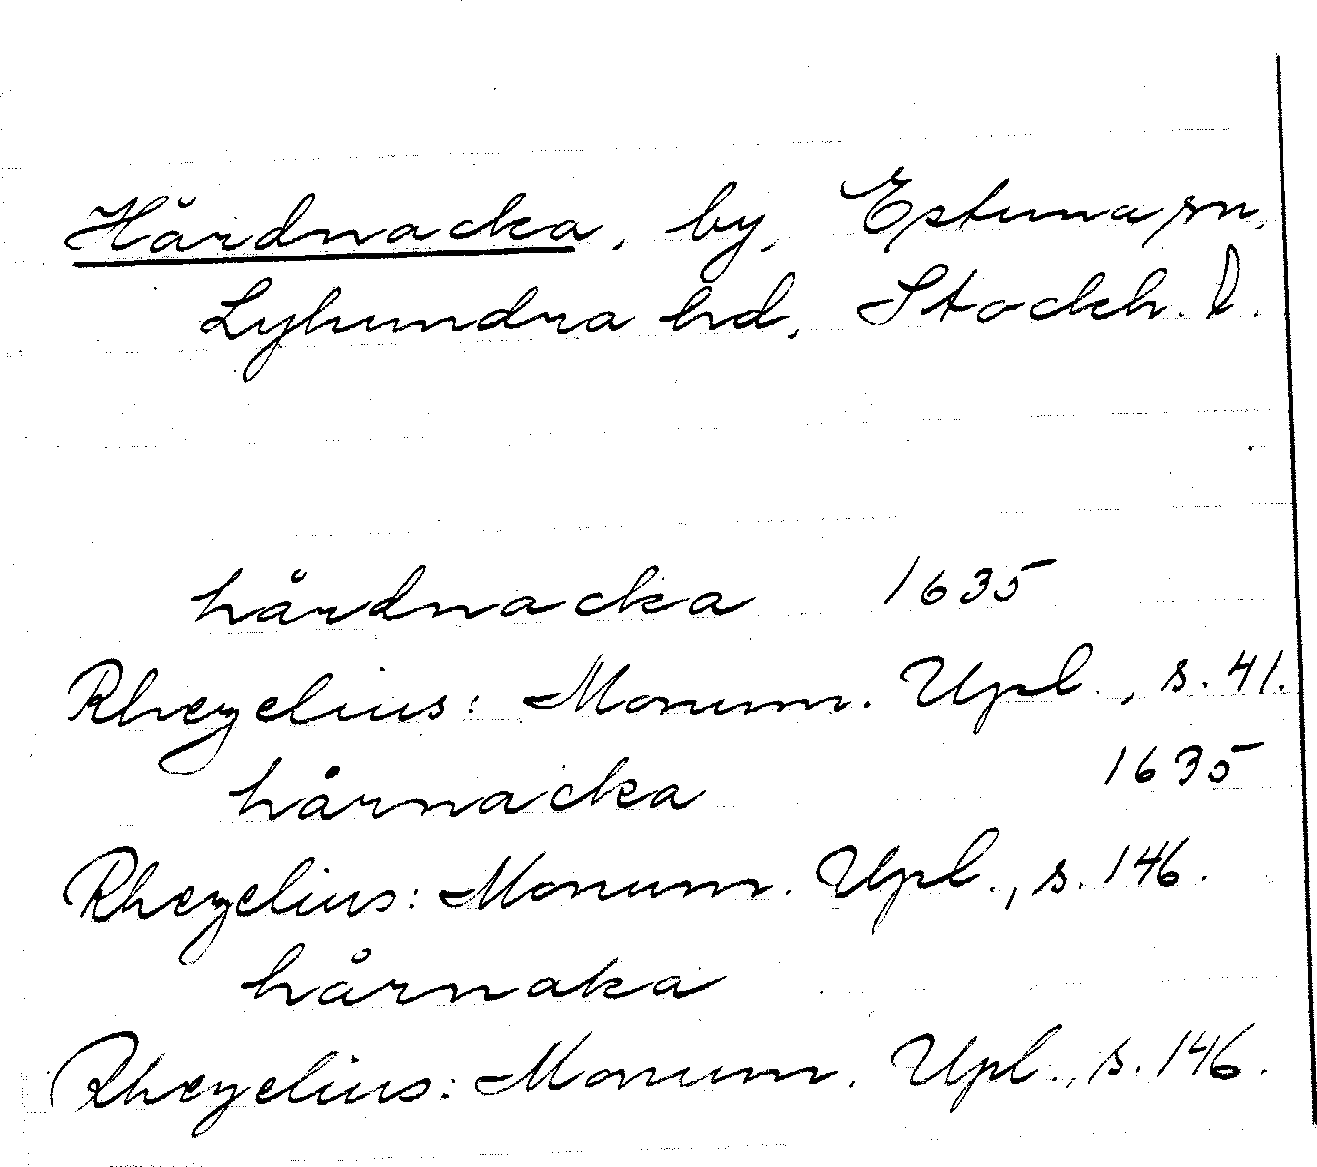 Hårdnacka, by, Estuna sn,
Lyhundra hd, Stockh. l.
hårdnacka 1635
Rhezelius: Monum. Upl., s. 41.
hårnacka 1635
Rhezelius: Monum. Upl., s. 146.
hårnaka
Rhezelius: Monum. Upl., s. 146.